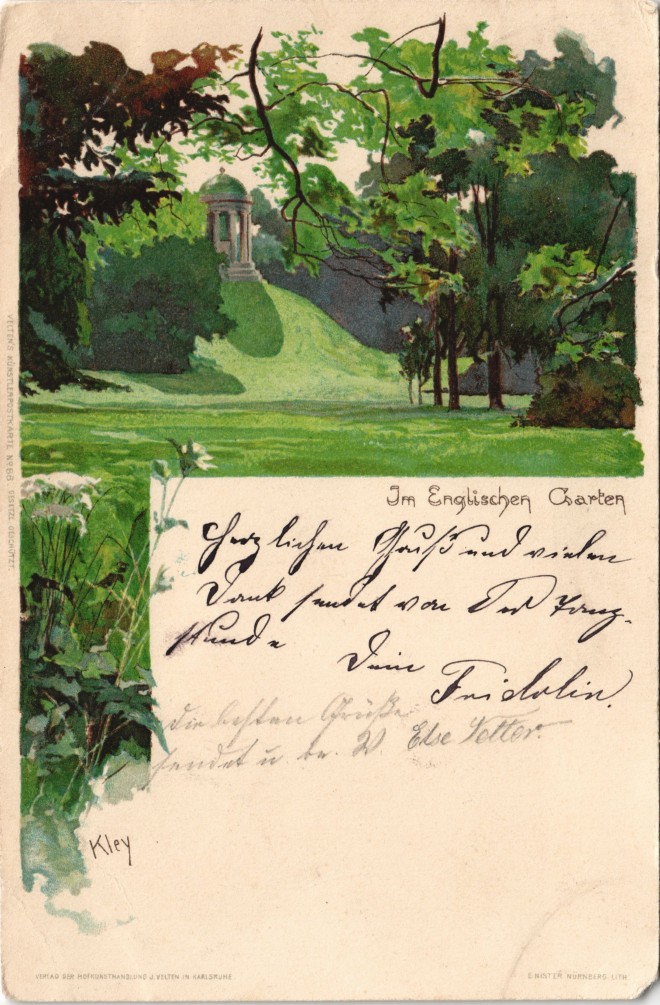 Im Englischen Garten
Herzlichen Gruß und vielen
Dank sendet von der Tanz-
stunde
Dein
Fridolin.
Die besten Grüße
sendet u. Else Vetter.
Kley
VELTEN'S KÜNSTLERPOSTKARTE No 88. GESETZL. GESCHÜTZT.
VERLAG DER HOFKUNSTHANDLUNG J. VELTEN IN KARLSRUHE.
E. NISTER NÜRNBERG LITH